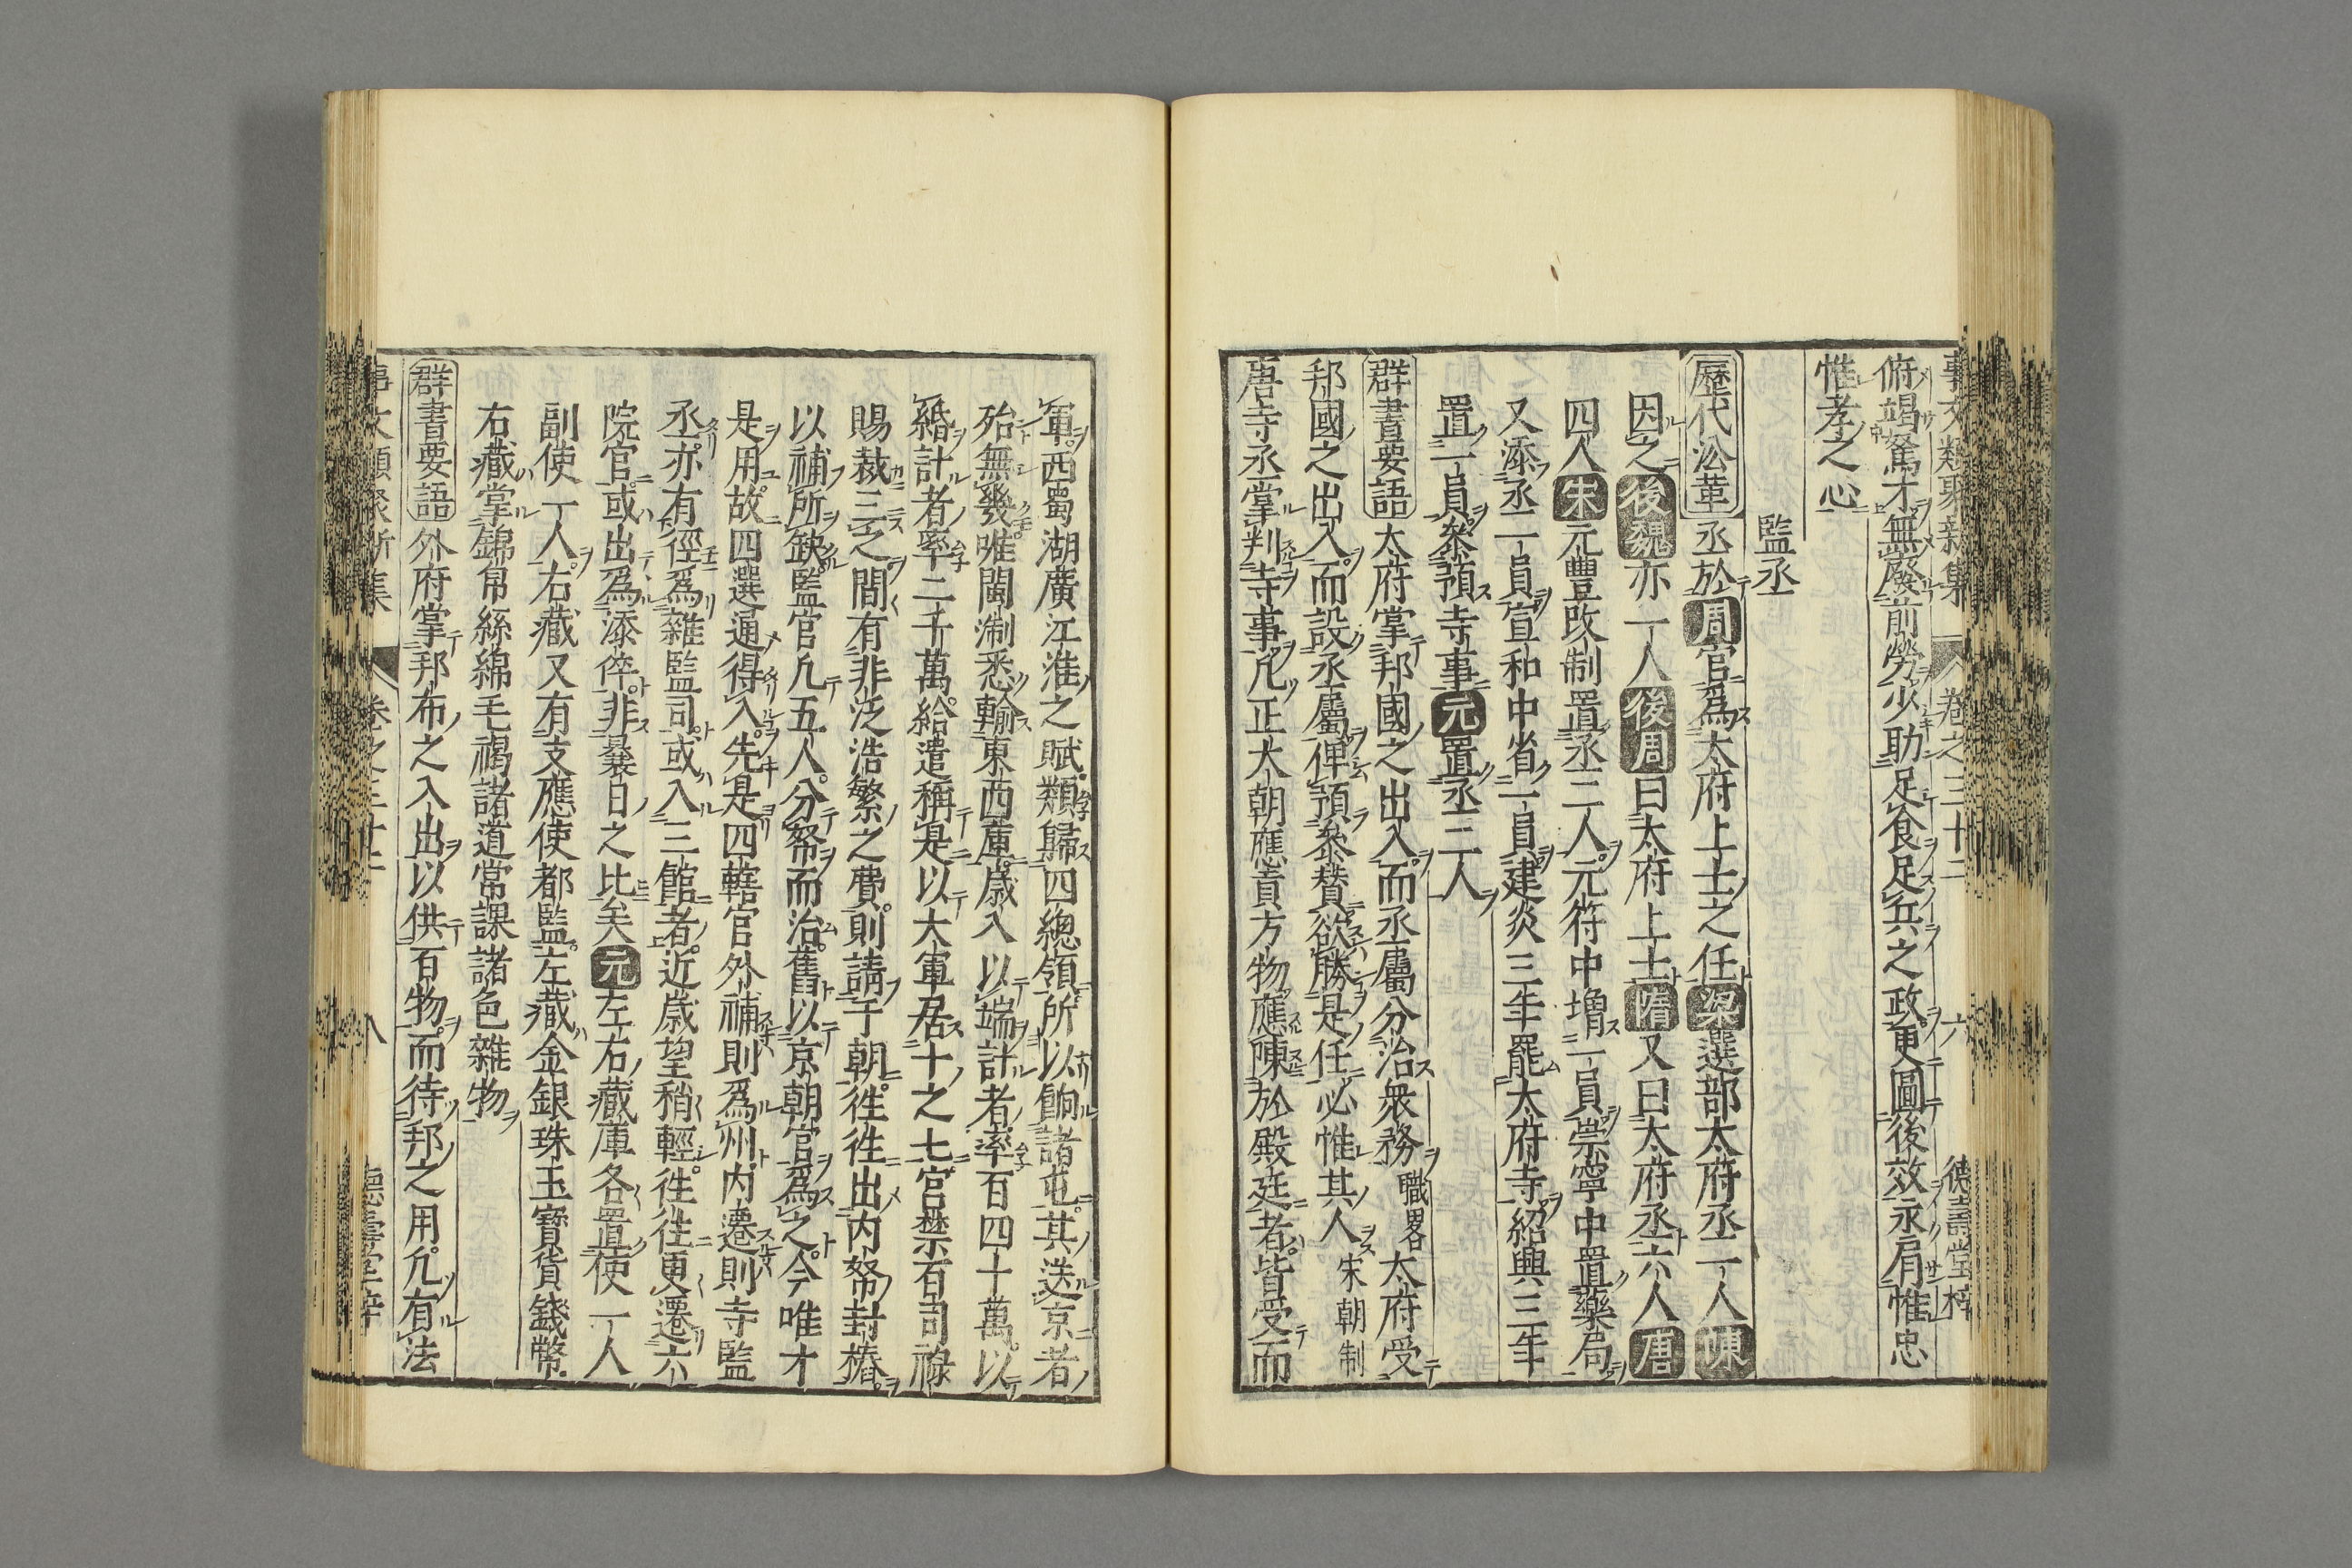 事文類聚新集 卷之三十二 六 德壽堂梓
俯竭駑才無廢前勞少助足食足兵之政更圖後效永肩惟忠
惟孝之心
監丞
歷代沿革 丞於周官爲太府上士之任梁選部太府丞一人陳
因之後魏亦一人後周曰太府上士隋又曰太府丞六人唐
四人宋元豐改制置丞二人元符中增一員崇寧中置藥局
又添丞一員宣和中省一員建炎三年罷太府寺紹興三年
置一員叅預寺事元置丞二人
群書要語 太府掌邦國之出入而丞屬分治衆務職畧太府受
邦國之出入而設丞屬俾預叅贊欲勝是任必惟其人宋朝制
唐寺丞掌判寺事凡正大朝應貢方物應陳於殿廷者皆受而
軍西蜀湖廣江淮之賦類歸四總領所以餉諸屯其送京者
殆無幾唯閩淛悉輸東西庫歲入以端計者率百四十萬以
緡計者率二千萬給遣稱是以大軍居十之七宮禁百司祿
賜裁三之間有非泛浩繁之費則請于朝徃徃出内帑封樁
以補所缺監官凡五人分帑而治舊以京朝官爲之今唯才
是用故四選通得入先是四轄官外補則爲州内遷則寺監
丞亦有徑爲雜監司或入三館者近歲望稍輕徃徃更遷六
院官或出爲添倅非曩日之比矣元左右藏庫各置使一人
副使一人右藏又有支應使都監左藏金銀珠玉寶貨錢幣
右藏掌錦帛絲綿毛褐諸道常課諸色雜物
群書要語 外府掌邦布之入出以供百物而待邦之用凡有法
事文類聚新集 卷之三十二 八 德壽堂梓